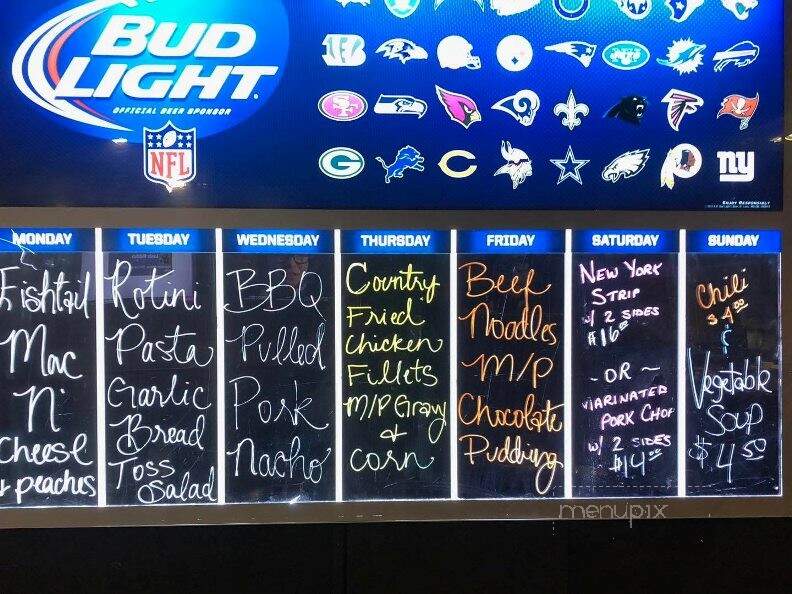 BUD
LIGHT
OFFICIAL BEER SPONSOR
NFL
ny
MONDAY
Fishtail
Mac
N'
Cheese
+ peaches
TUESDAY
Rotini
Pasta
Garlic
Bread
Toss
Salad
WEDNESDAY
BBQ
Pulled
Pork
Nacho
THURSDAY
Country
Fried
Chicken
Fillets
M/P Gravy
&
corn
FRIDAY
Beef
Noodles
M/P
Chocolate
Pudding
SATURDAY
NEW YORK
STRIP
w/ 2 SIDES
$16⁰⁰
- OR ~
MARINATED
PORK CHOP
w/ 2 SIDES
$14⁰⁰
SUNDAY
Chili
$4⁰⁰
&
Vegetable
Soup
$4⁵⁰
ENJOY RESPONSIBLY
menupix